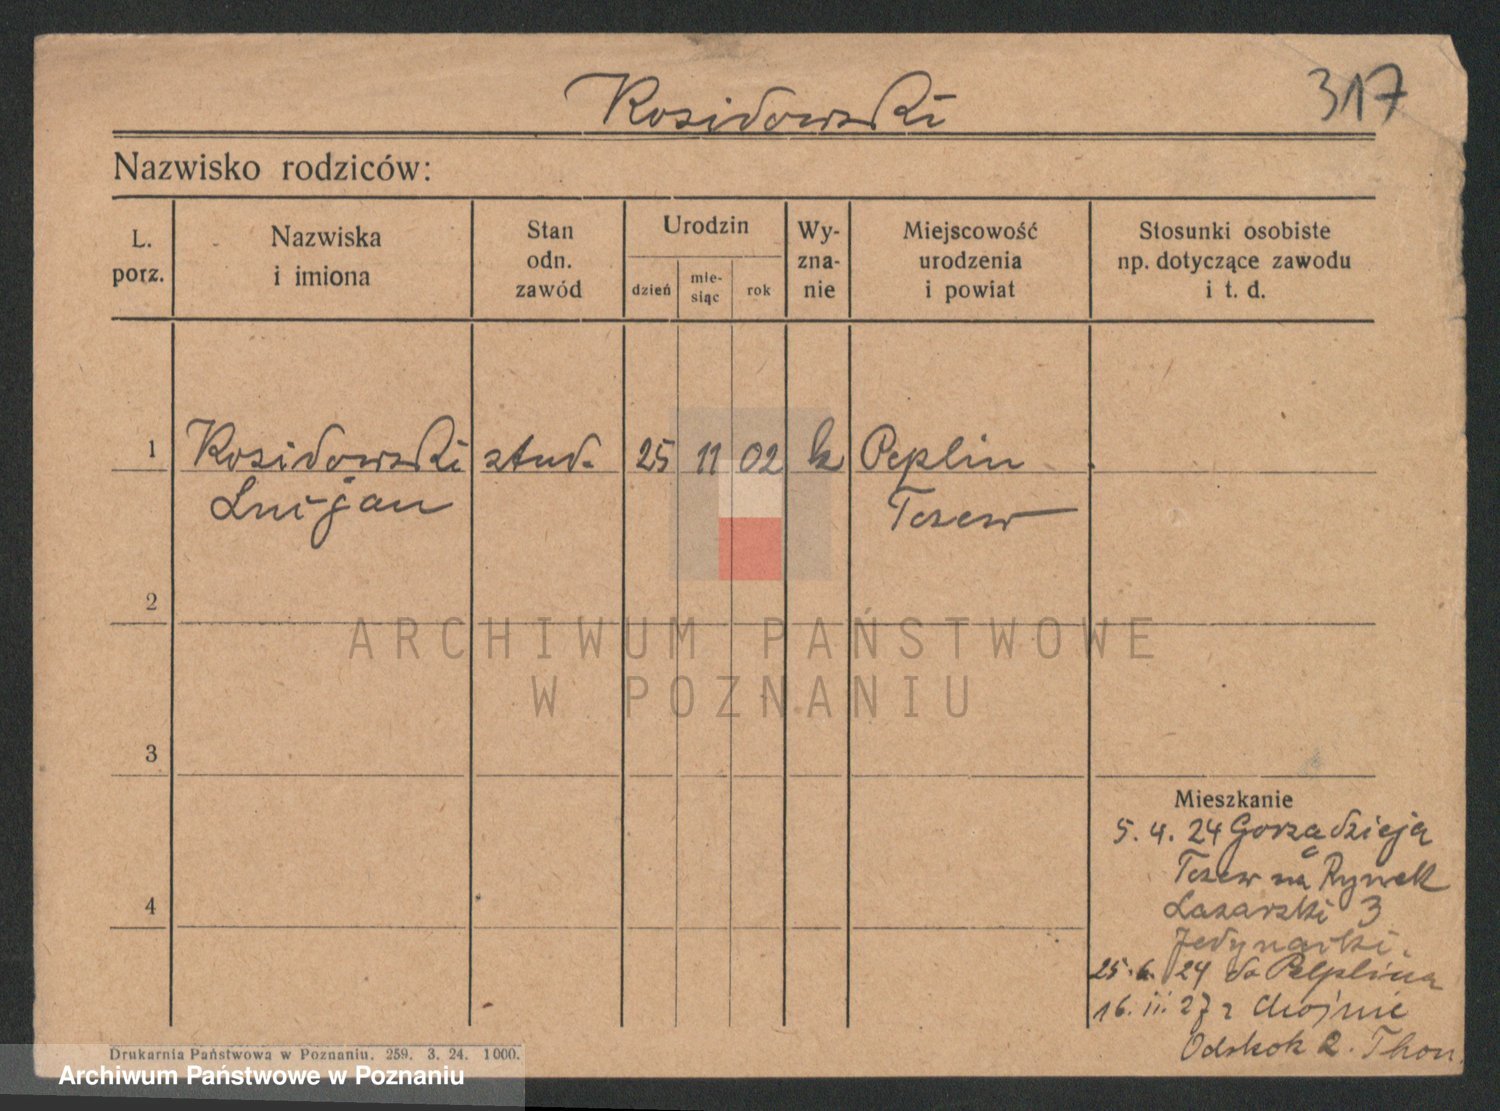 Kosidowski
317
Nazwisko rodziców:
L. porz.
Nazwiska i imiona
Stan odn. zawód
Urodzin
dzień
mie-siąc
rok
Wy-zna-nie
Miejscowość urodzenia i powiat
Stosunki osobiste np. dotyczące zawodu i t. d.
1 Kosidowski stud. 25 11 02 k Peplin
Lucjan Tczew
2
ARCHIWUM PAŃSTWOWE
W POZNANIU
3
Mieszkanie
5. 4. 24 Gorządzieja
Tczew na Rynek
4
Lazarski 3
25. 6. 24 do Pelplina
16. ii. 27 z Chojnic
Odskok 2. Thom
Drukarnia Państwowa w Poznaniu. 259. 3. 24. 1000.
Archiwum Państwowe w Poznaniu